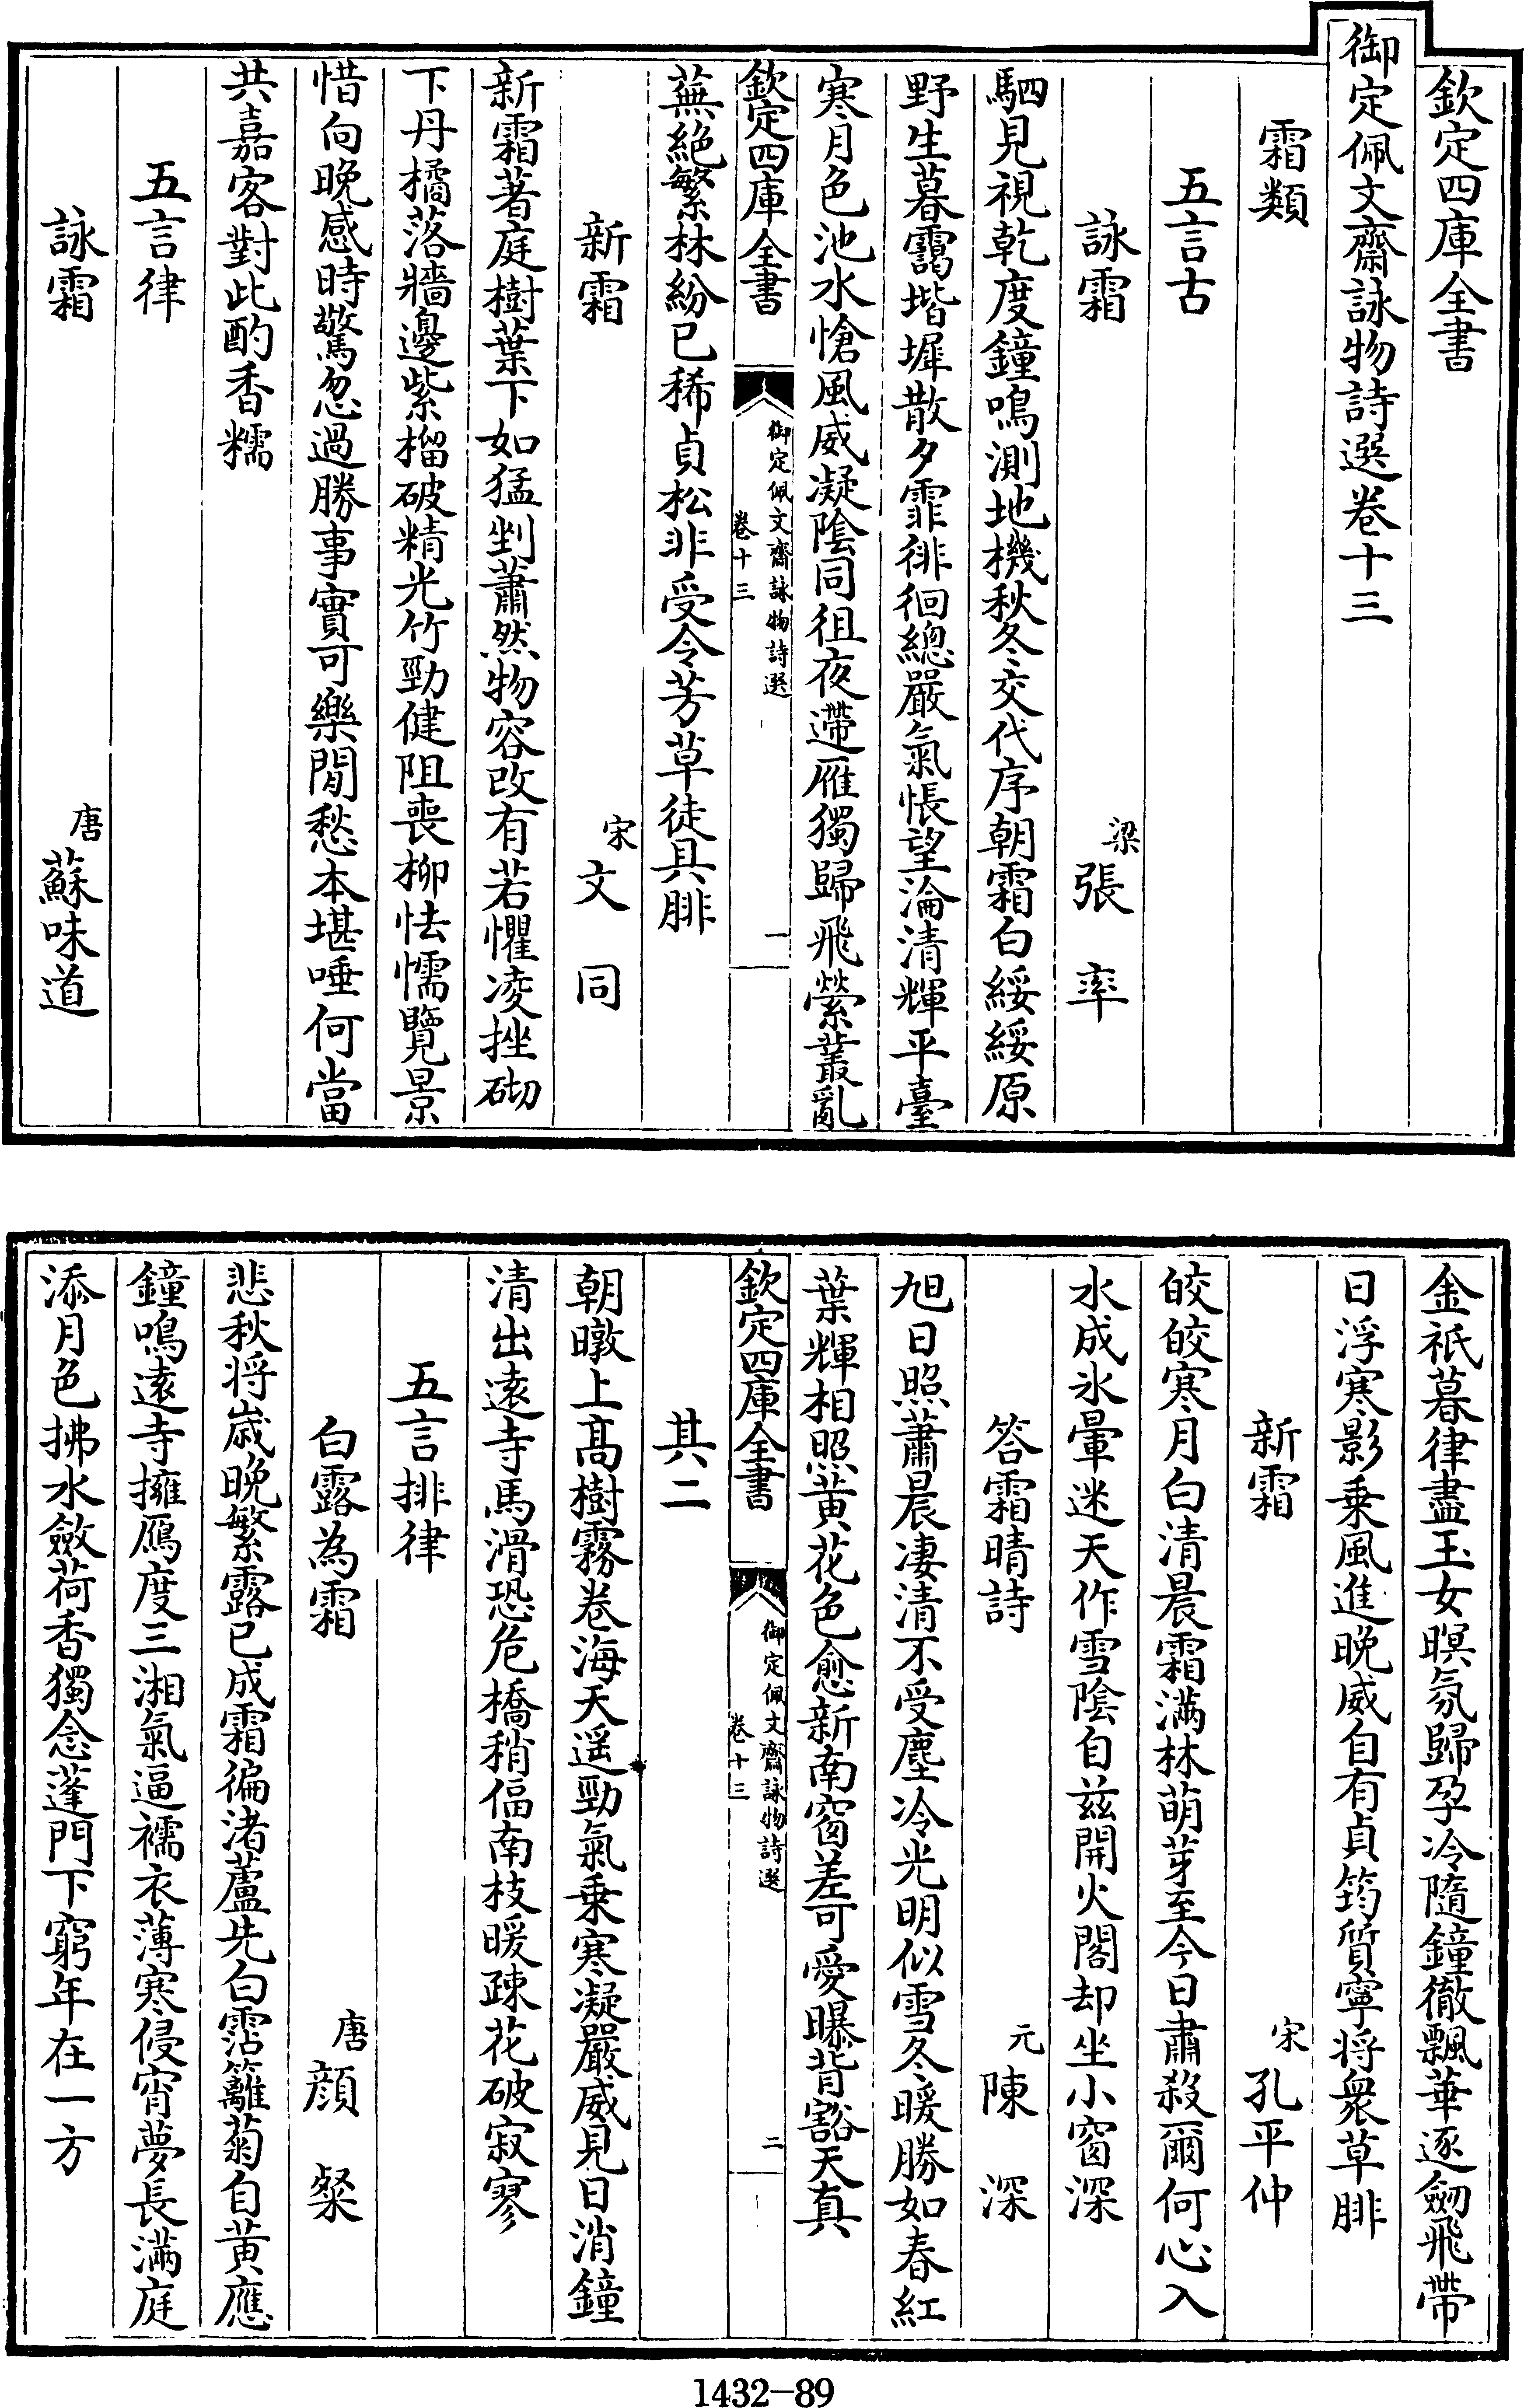 欽定四庫全書
御定佩文齋詠物詩選卷十三
霜類
五言古
詠霜　梁張率
駟見視乾度鐘鳴測地機秋冬交代序朝霜白綏綏原
野生暮靄堦墀散夕霏徘徊總嚴氣悵望淪清輝平臺
寒月色池水愴風威凝陰同徂夜遰雁獨歸飛縈叢亂
欽定四庫全書
御定佩文齋詠物詩選
卷十三
一
蕪絕繁林紛已稀貞松非受令芳草徒具腓
新霜　宋文同
新霜著庭樹葉下如猛剉蕭然物容改有若懼凌挫砌
下丹橘落牆邊紫榴破精光竹勁健阻喪柳怯懦覽景
惜向晚感時驚忽過勝事實可樂閒愁本堪唾何當
共嘉客對此酌香糯
五言律
詠霜　唐蘇味道
金祇暮律盡玉女暝氛歸孕冷隨鐘徹飄華逐劒飛帶
日浮寒影乗風進晚威自有貞筠質寧将衆草腓
新霜　宋孔平仲
皎皎寒月白清晨霜滿林萌芽至今日肅殺爾何心入
水成氷暈迷天作雪陰自兹開火閣却坐小窗深
答霜晴詩　元陳深
旭日照蕭晨凄清不受塵冷光明似雪冬暖勝如春紅
葉輝相照黄花色愈新南窗差可愛曝背豁天真
欽定四庫全書
御定佩文齋詠物詩選
卷十三
二
其二
朝暾上髙樹霧卷海天遥勁氣乗寒凝嚴威見日消鐘
清出遠寺馬滑恐危橋稍偪南枝暖疎花破寂寥
五言排律
白露為霜　唐顔粲
悲秋将歳晚繁露已成霜徧渚蘆先白霑籬菊自黄應
鐘鳴遠寺擁鴈度三湘氣逼襦衣薄寒侵宵夢長滿庭
添月色拂水斂荷香獨念蓬門下窮年在一方
1432-89